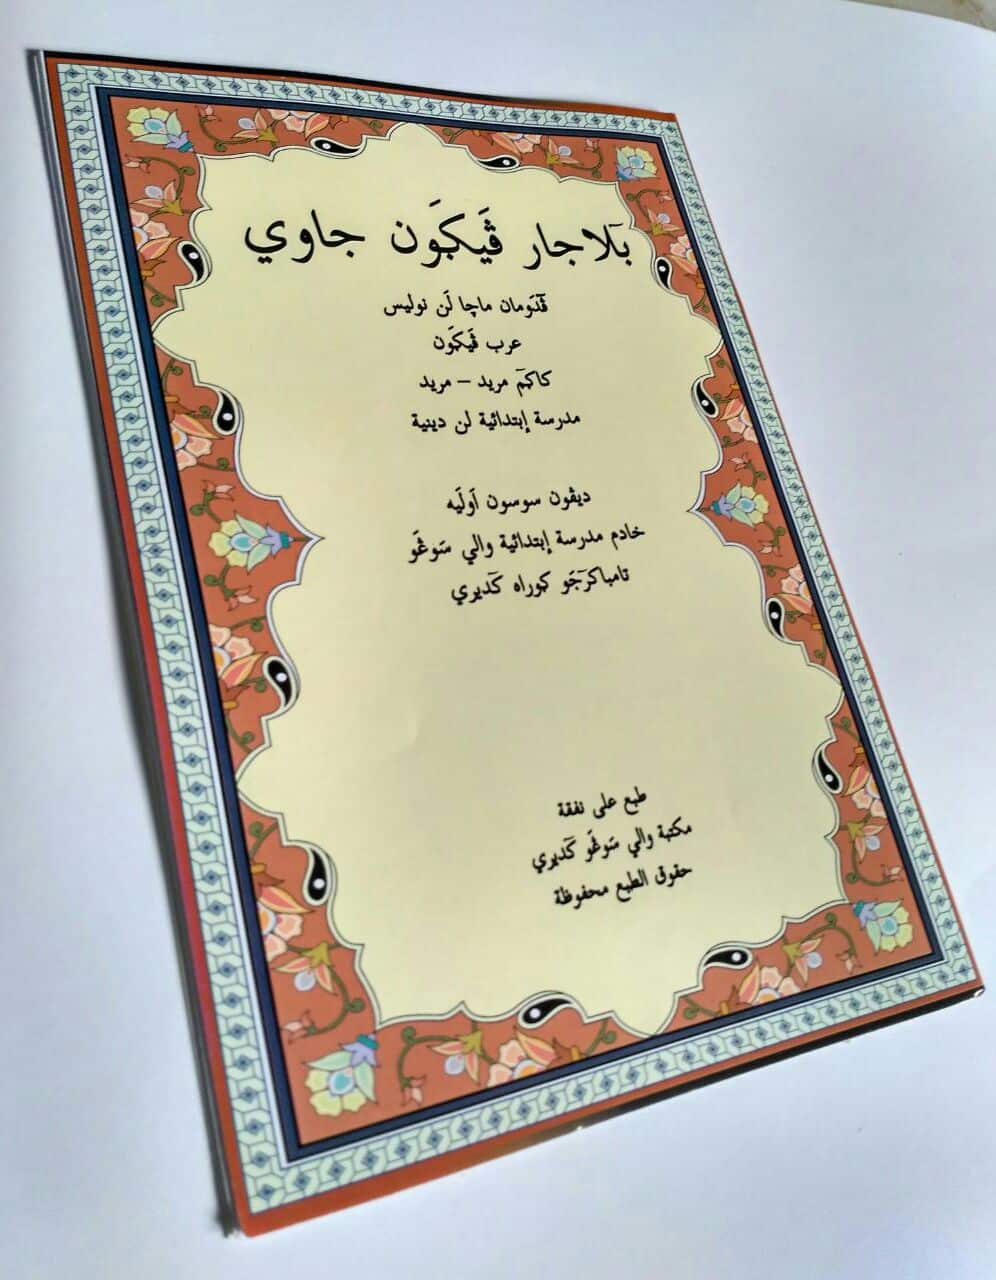 بَلاجار ڤَيڮَون جاوي
ڤَنَومان ماچا لَن نوليس
عرب ڤَيڮَون
كاڮَم مريد – مريد
مدرسة إبتدائية لن دينية
ديڤون سوسون اَولَيه
خادم مدرسة إبتدائية والي سَوڠَو
تامباكرَجَو ڮوراه كَديري
طبع على نفقة
مكتبة والي سَوڠَو كَديري
حقوق الطبع محفوظة